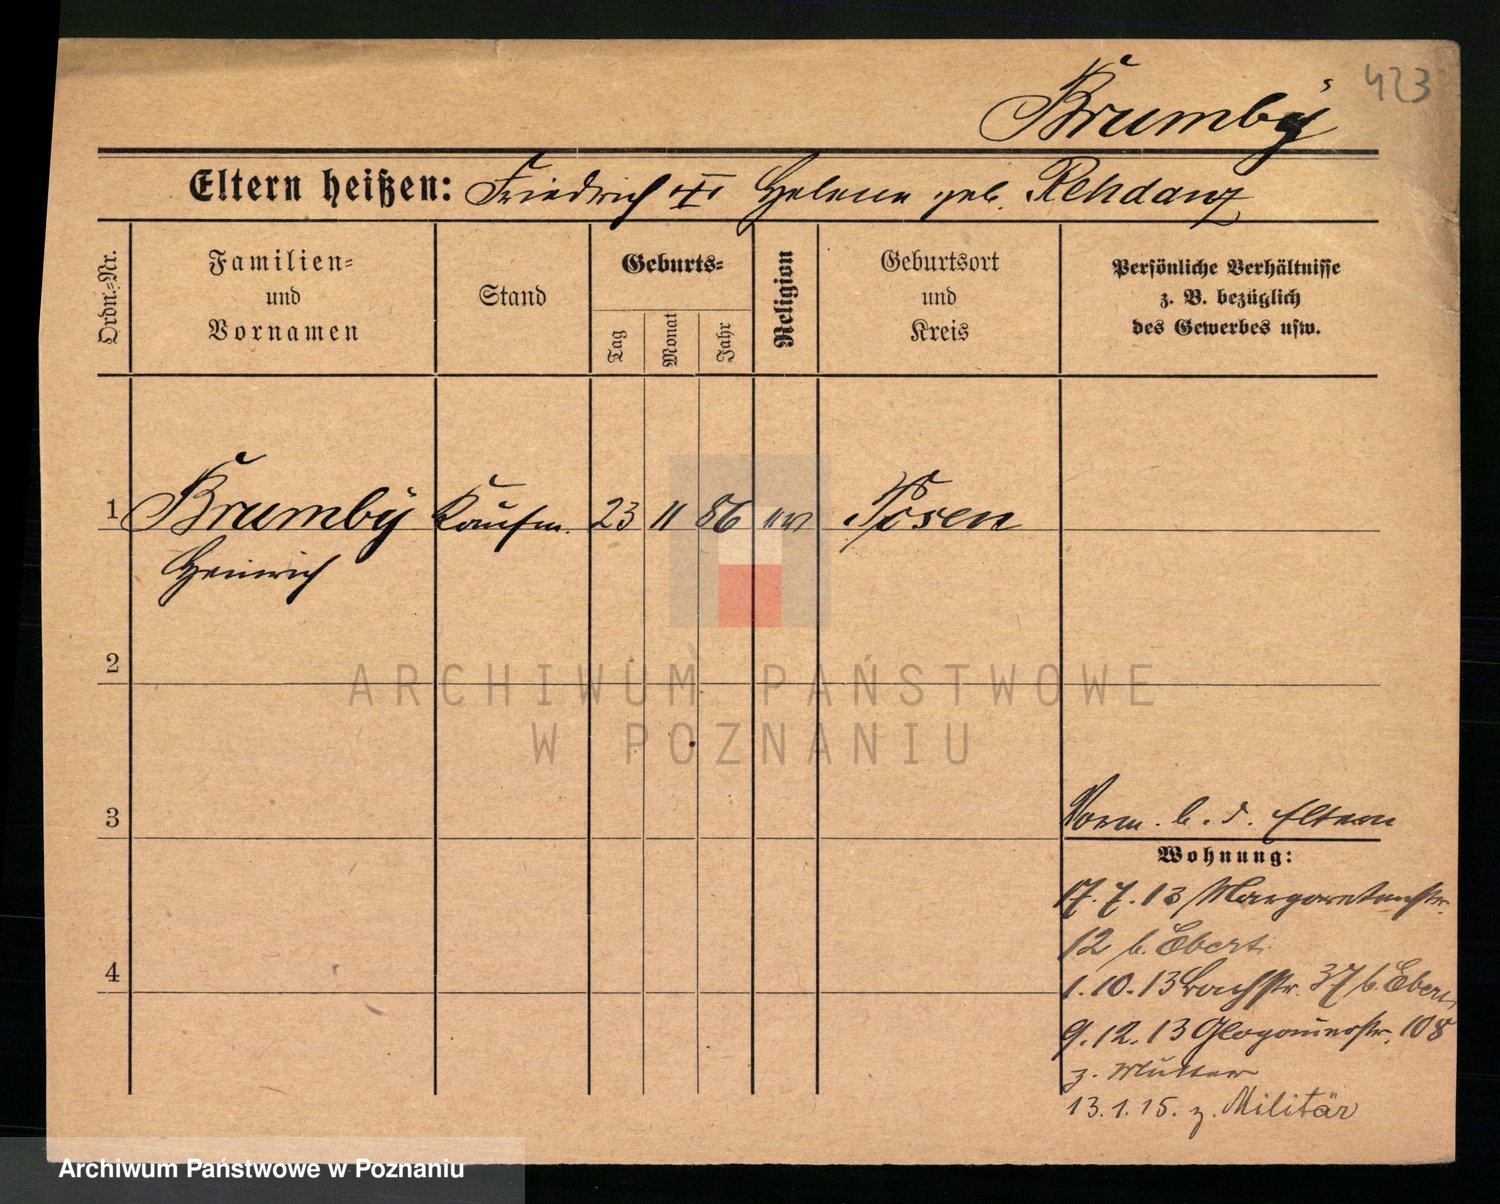 423
Brumby
Eltern heißen: Friedrich Helene geb. Rehdanz
Ordn.-Nr.
Familien=
und
Vornamen
Stand
Geburts=
Tag
Monat
Jahr
Religion
Geburtsort
und
Kreis
Persönliche Verhältnisse
z. B. bezüglich
des Gewerbes usw.
1 Brumby Kaufm. 23 11 86 ev Posen
Heinrich
2
ARCHIWUM PAŃSTWOWE
W POZNANIU
3
Vorm. b. d. Eltern
Wohnung:
17. 7. 13 Margaretenstr.
12 b. Ebert
4
1. 10. 13 37 b. Ebert
9. 12. 13 Glogauerstr. 108
z. Mutter
13. 1. 15. z. Militär
Archiwum Państwowe w Poznaniu